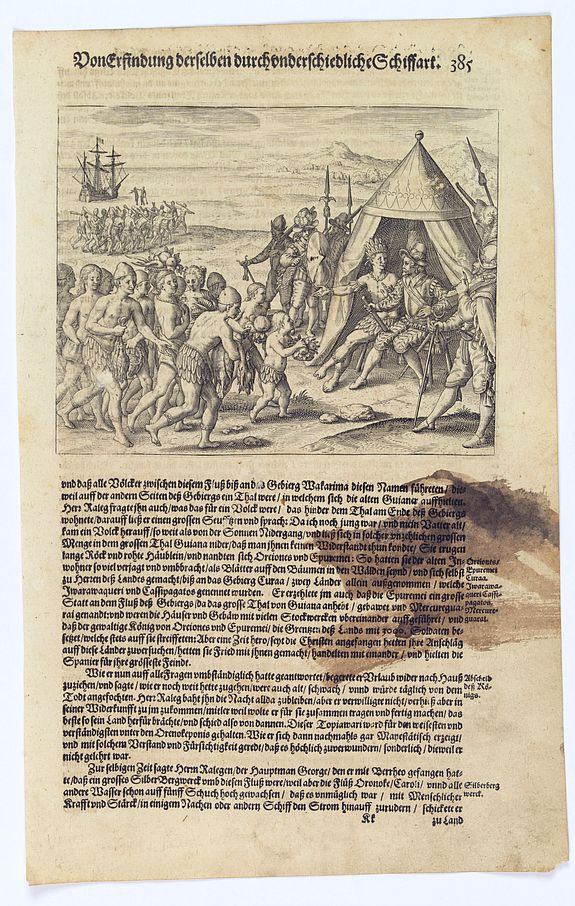 Von Erfindung derselben durch vnderschiedliche Schiffart. 385
vnd daß alle Völcker zwischen diesem Fluß biß an das Gebierg Wakarima diesen Namen führeten / die-
weil auff der andern Seiten deß Gebiergs ein Thal were / in welchem sich die alten Guianer auffhielten.
Herr Raleg fragte ihn auch / was das für ein Volck were / das hinder dem Thal am Ende deß Gebiergs
wohnete / darauff ließ er einen grossen Seufftzen vnd sprach: Da ich noch jung war / vnd mein Vatter alt /
kam ein Volck herauff / so weit als von der Sonnen Nidergang / vnd ließ sich in solcher vnzehlichen grossen
Menge in dem grossen Thal Guiana nider / daß man jhnen keinen Widerstandt thun kondte / Sie trugen
lange Röck vnd rohte Häublein / vnd nandten sich Oreiones vnd Epuremei: So hatten sie der alten In-
wohner so viel verjagt vnd vmbbracht / als Blätter auff den Bäumen in den Wäldern seynd / vnd sich selbst
zu Herren deß Landes gemacht / biß an das Gebierg Curaa / zwey Länder allein außgenommen / welche
Jwarawaqueri vnd Cassipagotos genennet wurden. Er erzehlete jm auch / daß die Epuremei ein grosse
Statt an dem Fluß deß Gebiergs / da das grosse Thal von Guiana anhebt / gebawet vnd Mercuregua-
rai genandt: vnd weren die Häuser vnd Gebäw mit vielen Stockwercken vbereinander auffgeführet / vnd
daß der gewaltige König von Oreiones vnd Epuremei / die Grentzen deß Lands mit 3000. Soldaten be-
setzet / welche stets auff sie streifften: Aber eine Zeit hero / sept die Christen angefangen hetten jhre Anschläg
auff diese Länder zuversuchen / hetten sie Fried mit jhnen gemacht / handelten mit einander / vnd hielten die
Spanier für jhre grösseste Feindt.
Oreiones /
Epuremei
Curaa.
Jwarawa-
queri Cassi-
pagotos.
Mercure-
guarai.
Wie er nun auff alle Fragen vmbständtlich hatte geantwortet / begerete er Vrlaub wider nach Hauß
zuziehen / vnd sagte / wie er noch weit hette zugehen / were auch alt / schwach / vnnd würde täglich von dem
Todt angefochten. Herr Raleg baht jhn die Nacht allda zubleiben / aber er verwilligte nicht / verhieß aber in
seiner Widerkunfft zu jm zukommen / mitler weil wolte er für sie zusammen tragen vnd fertig machen / das
beste so sein Land herfür brächte / vnd schied also von dannen. Dieser Topiawari ward für den weisesten vnd
verständigsten vnter den Orenokeponis gehalten. Wie er sich dann nachmahls gar Mayestätisch erzeigt /
vnd mit solchem Verstand vnd Fürsichtigkeit geredt / daß es höchlich zuverwundern / sonderlich / dieweil er
nicht gelehrt war.
Abscheid
deß Kö-
nigs.
Zur selbigen Zeit sagte Herrn Ralegen / der Hauptman George / den er mit Berrheo gefangen hat-
te / daß ein grosses Silber Bergwerck vmb diesen Fluß were / weil aber die Flüß Oronoke / Caroli / vnnd alle
andere Wasser schon auff fünff Schuch hoch gewachsen / daß es vnmüglich war / mit Menschlicher
Krafft vnd Stärck / in einigem Nachen oder andern Schiff den Strom hinauff zurudern / schickete er
Silberberg
werck.
Kk zu Land